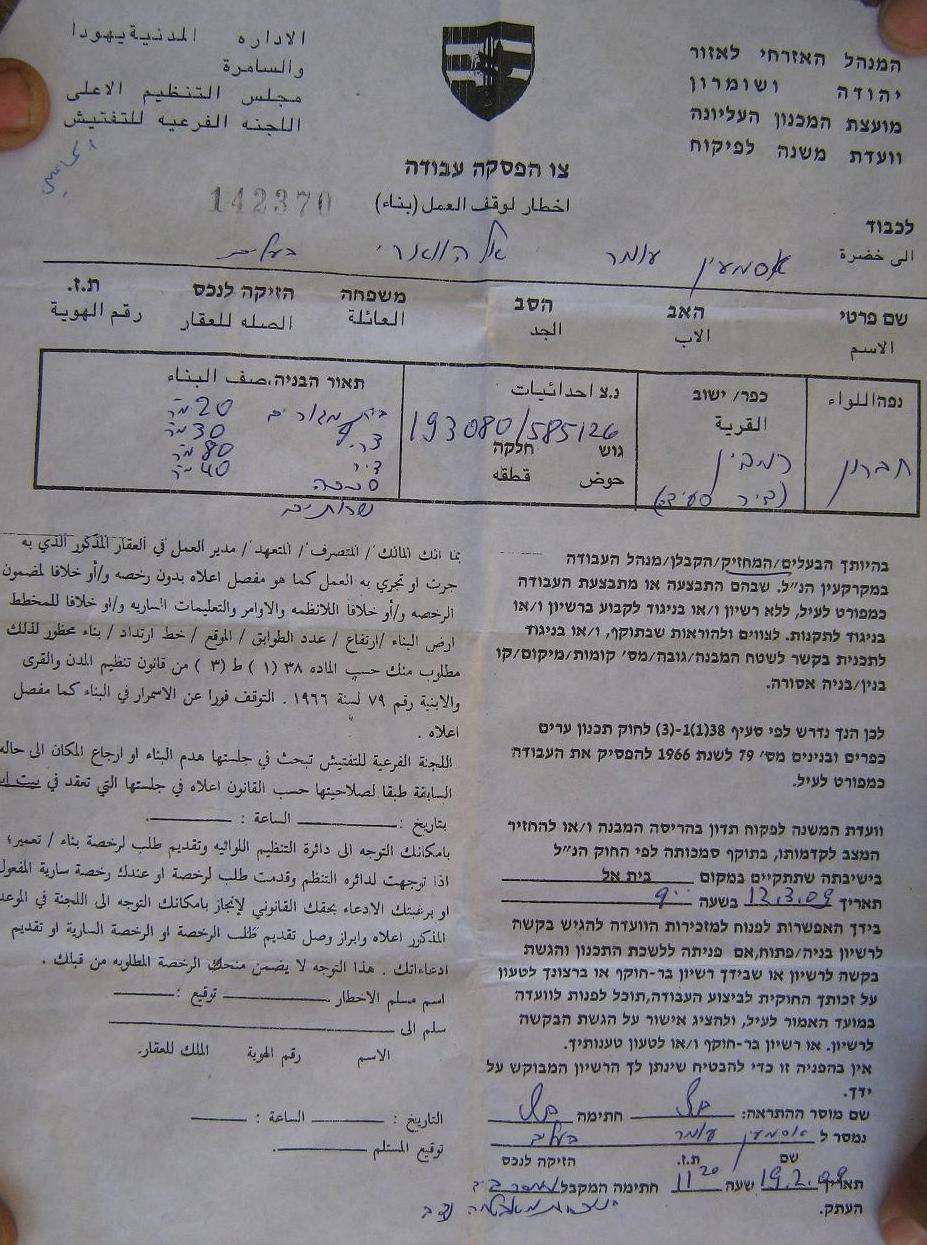 המנהל האזרחי לאזור
יהודה ושומרון
מועצת המכנון העליונה
וועדת משנה לפיקוח
الاداره المدنية يهودا
والسامرة
مجلس التنظيم الاعلى
اللجنه الفرعيه للتفتيش
צו הפסקה עבודה
اخطار لوقف العمل (بناء)
142370
לכבוד
الى خضرة
אסמעין עומר בעלים
שם פרטי האב הסב משפחה הזיקה לנכס ת.ז.
الاسم الاب الجد العائلة الصله للعقار رقم الهوية
נפה اللواء
חברון
כפר/ ישוב
القرية
נ.צ احداثيات
193080/585126
גוש חלקה
حوض قطقه
תאור הבניה, صف البناء
בית מגורים 20 מ"ר
30 מ"ר
דיר 80 מ"ר
40 מ"ר
שרותים
בהיותך הבעלים/המחזיק/הקבלן/מנהל העבודה
במקרקעין הנ"ל. שבהם התבצעה או מתבצעת העבודה
כמפורט לעיל, ללא רשיון ו/או בניגוד לקבוע ברשיון ו/או
בניגוד לתקנות. לצווים ולהוראות שבתוקף, ו/או בניגוד
לתכנית בקשר לשטח המבנה/גובה/מס' קומות/מיקום/קו
בנין/בניה אסורה.
לכן הנך נדרש לפי סעיף 38(1)-1(3) לחוק תכנון ערים
כפרים ובנינים מס' 79 לשנת 1966 להפסיק את העבודה
כמפורט לעיל.
וועדת המשנה לפקוח תדון בהריסה המבנה ו/או להחזיר
המצב לקדמותו, בתוקף סמכותה לפי החוק הנ"ל
בישיבתה שתתקיים במקום בית אל
תאריך 12.3.09 בשעה 9.00
בידך האפשרות לפנות למזכירות הוועדה להגיש בקשה
לרשיון בניה/פתוח, אם פניתה ללשכת התכנון והגשת
בקשה לרשיון או שבידך רשיון בר-חוקף או ברצונך לטעון
על זכותך החוקית לביצוע העבודה, תוכל לפנות לוועדה
במועד האמור לעיל, ולהציג אישור על הגשת הבקשה
לרשיון. או רשיון בר-חוקף ו/או לטעון טענותיך.
אין בהפניה זו כדי להבטיח שינתן לך הרשיון המבוקש על
ידך.
שם מוסר ההתראה: חתימה
נמסר ל אסמעין עומר בעלים
שם ת.ז. הזיקה לנכס
תאריך 19.2.09 שעה 11 20 חתימה המקבל
העתק.
بما انك المالك/ المتصرف/ المتعهد/ مدير العمل في العقار المذكور الذي به
جرت او تجري به العمل كما هو مفصل اعلاه بدون رخصه و/أو خلافا لمضمون
الرخصه و/أو خلافا للانظمه والاوامر والتعليمات الساريه و/او خلافا للمخطط
ارض البناء /ارتفاع / عدد الطوابق / الموقع / خط ارتداد / بناء محظور لذلك
مطلوب منك حسب الماده ٣٨ (١) ط (٣) من قانون تنظيم المدن والقرى
والابنية رقم ٧٩ لسنة ١٩٦٦ . التوقف فورا عن الاسمرار في البناء كما مفصل
اعلاه .
اللجنة الفرعية للتفتيش تبحث في جلستها هدم البناء او ارجاع المكان الى حاله
السابقة طبقا لصلاحيتها حسب القانون اعلاه في جلستها التي تعقد في بيت ايل
بتاريخ : الساعة :
بامكانك التوجه الى دائرة التنظيم اللوائيه وتقديم طلب لرخصة بناء / تعمير؛
اذا توجهت لدائره التنظم وقدمت طلب لرخصة او عندك رخصة سارية المفعول
او برغبتك الادعاء بحقك القانوني لإنجاز بامكانك التوجه الى اللجنة في الموعد
المذكور اعلاه وابراز وصل تقديم طلب الرخصة او الرخصة السارية او تقديم
ادعاءاتك . هذا التوجه لا يضمن منحك الرخصة المطلوبه من قبلك .
اسم مسلم الاخطار توقيع :
سلم الى
الاسم رقم الهوية الملك للعقار.
التاريخ : الساعة :
توقيع المستلم